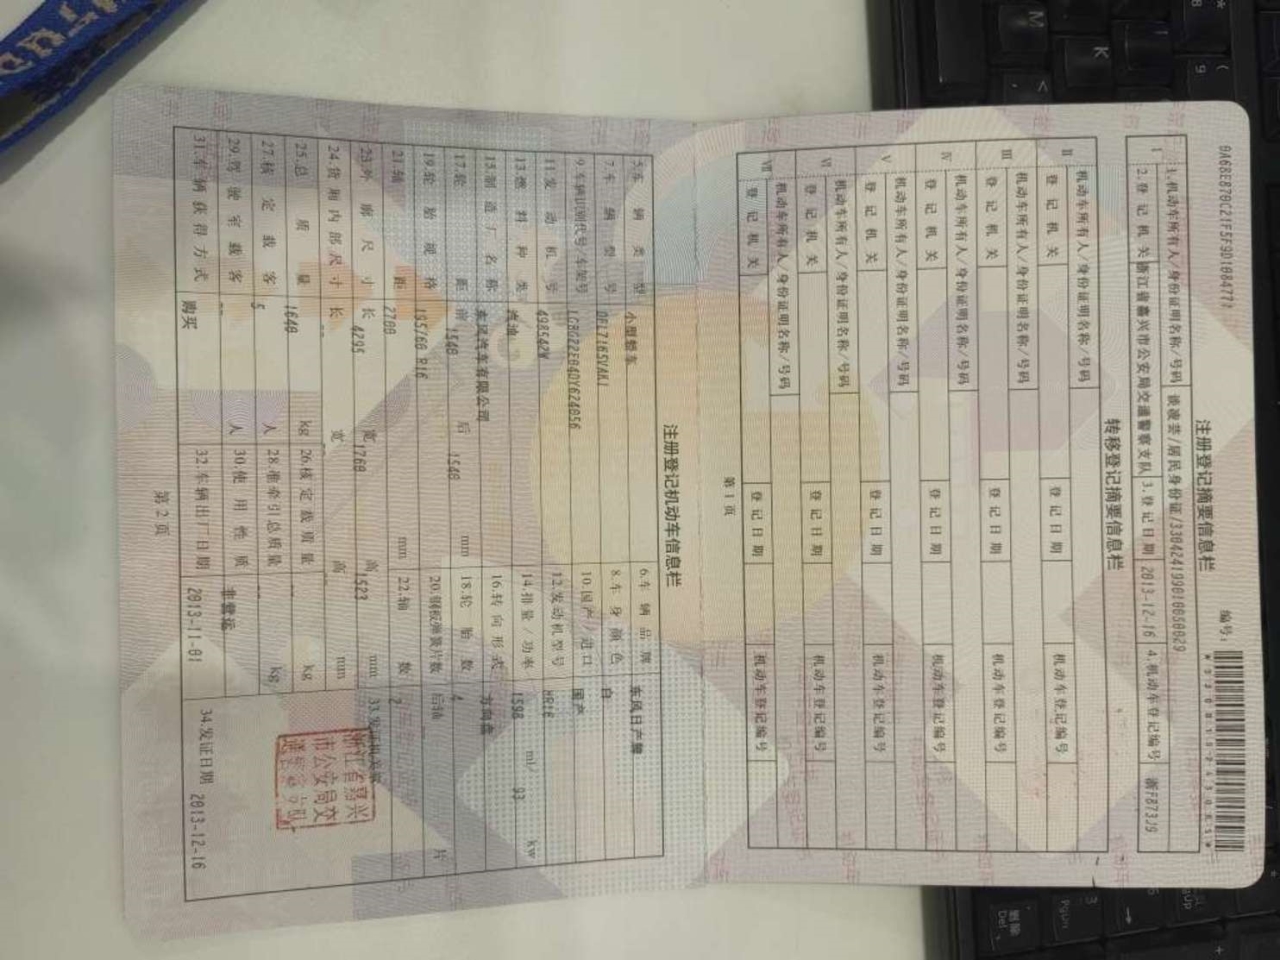 注册登记摘要信息栏
编号:
1.机动车所有人/身份证明名称/号码
居民身份证
2.登记机关 浙江省嘉兴市公安局交通警察支队 3.登记日期 2013-12-16 4.机动车登记编号 浙F873J9
转移登记摘要信息栏
II 机动车所有人/身份证明名称/号码
登记机关 登记日期 机动车登记编号
III 机动车所有人/身份证明名称/号码
登记机关 登记日期 机动车登记编号
IV 机动车所有人/身份证明名称/号码
登记机关 登记日期 机动车登记编号
V 机动车所有人/身份证明名称/号码
登记机关 登记日期 机动车登记编号
VI 机动车所有人/身份证明名称/号码
登记机关 登记日期 机动车登记编号
VII 机动车所有人/身份证明名称/号码
登记机关 登记日期 机动车登记编号
第1页
注册登记机动车信息栏
5.车辆类型 小型轿车 6.车辆品牌 东风日产牌
7.车辆型号 8.车身颜色 白
9.车辆识别代号/车架号 10.国产/进口 国产
11.发动机号 498542W 12.发动机型号 HR16
13.燃料种类 汽油 14.排量/功率 1598 ml/ 93 kw
15.制造厂名称 东风汽车有限公司 16.转向形式 方向盘
17.轮距 前 1540 后 1540 mm 18.轮胎数 4
19.轮胎规格 195/60 R16 20.钢板弹簧片数 后轴 片
21.轴距 2700 mm 22.轴数 2
23.外廓尺寸 长 4295 宽 1760 高 1523 mm 33.发证机关章
24.货厢内部尺寸 长 宽 高 mm
25.总质量 1640 kg 26.核定载质量 kg
27.核定载客 5 人 28.准牵引总质量 kg
29.驾驶室载客 人 30.使用性质 非营运
31.车辆获得方式 购买 32.车辆出厂日期 2013-11-01 34.发证日期 2013-12-16
第2页